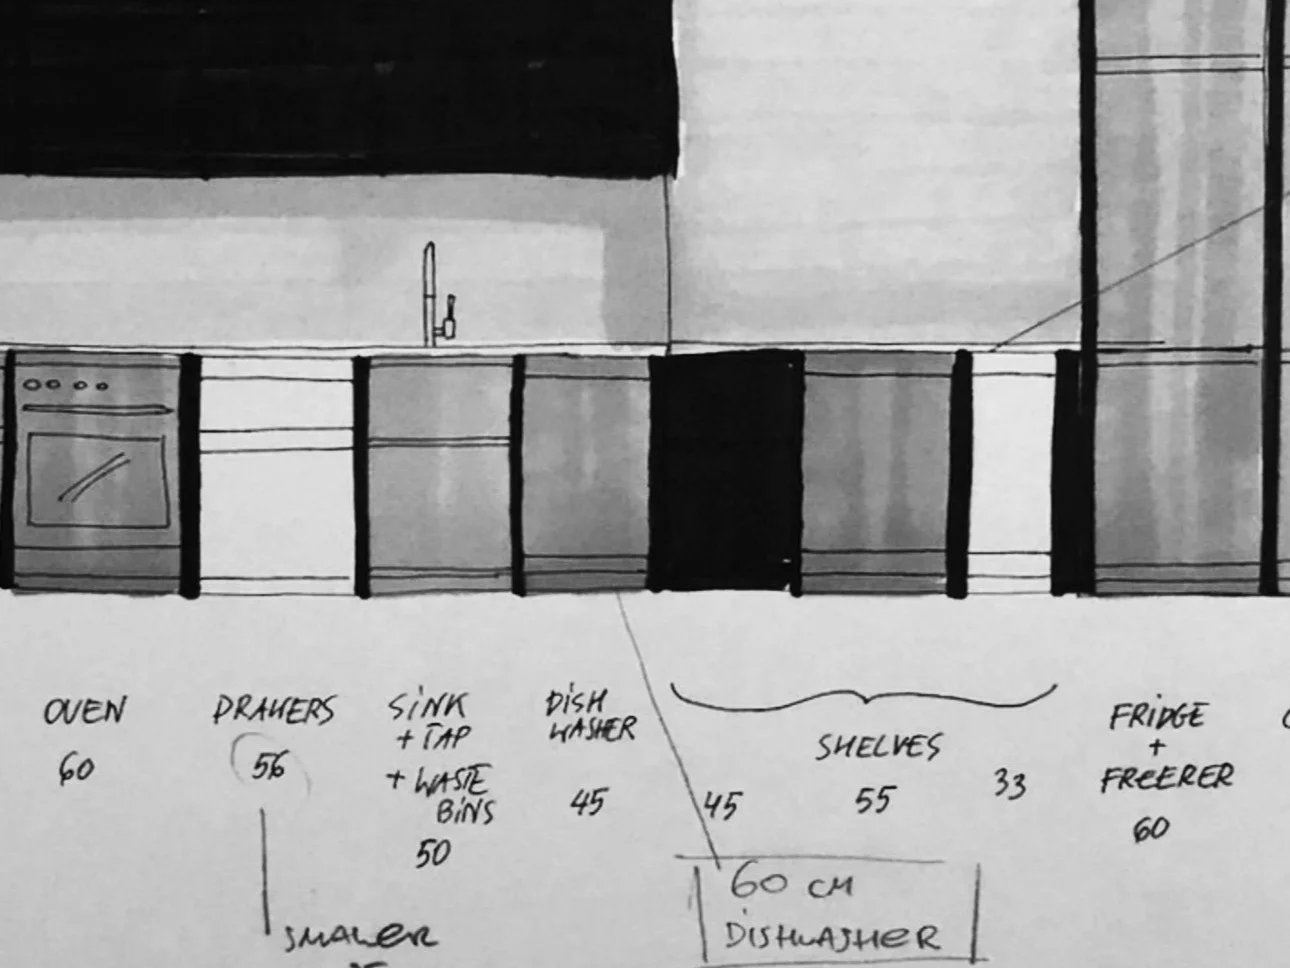 OVEN
60
DRAWERS
56
SINK
+ TAP
+ WASTE
BINS
50
DISH
WASHER
45
SHELVES
45
55
33
FRIDGE
+
FREERER
60
60 CM
DISHWASHER
SMALER